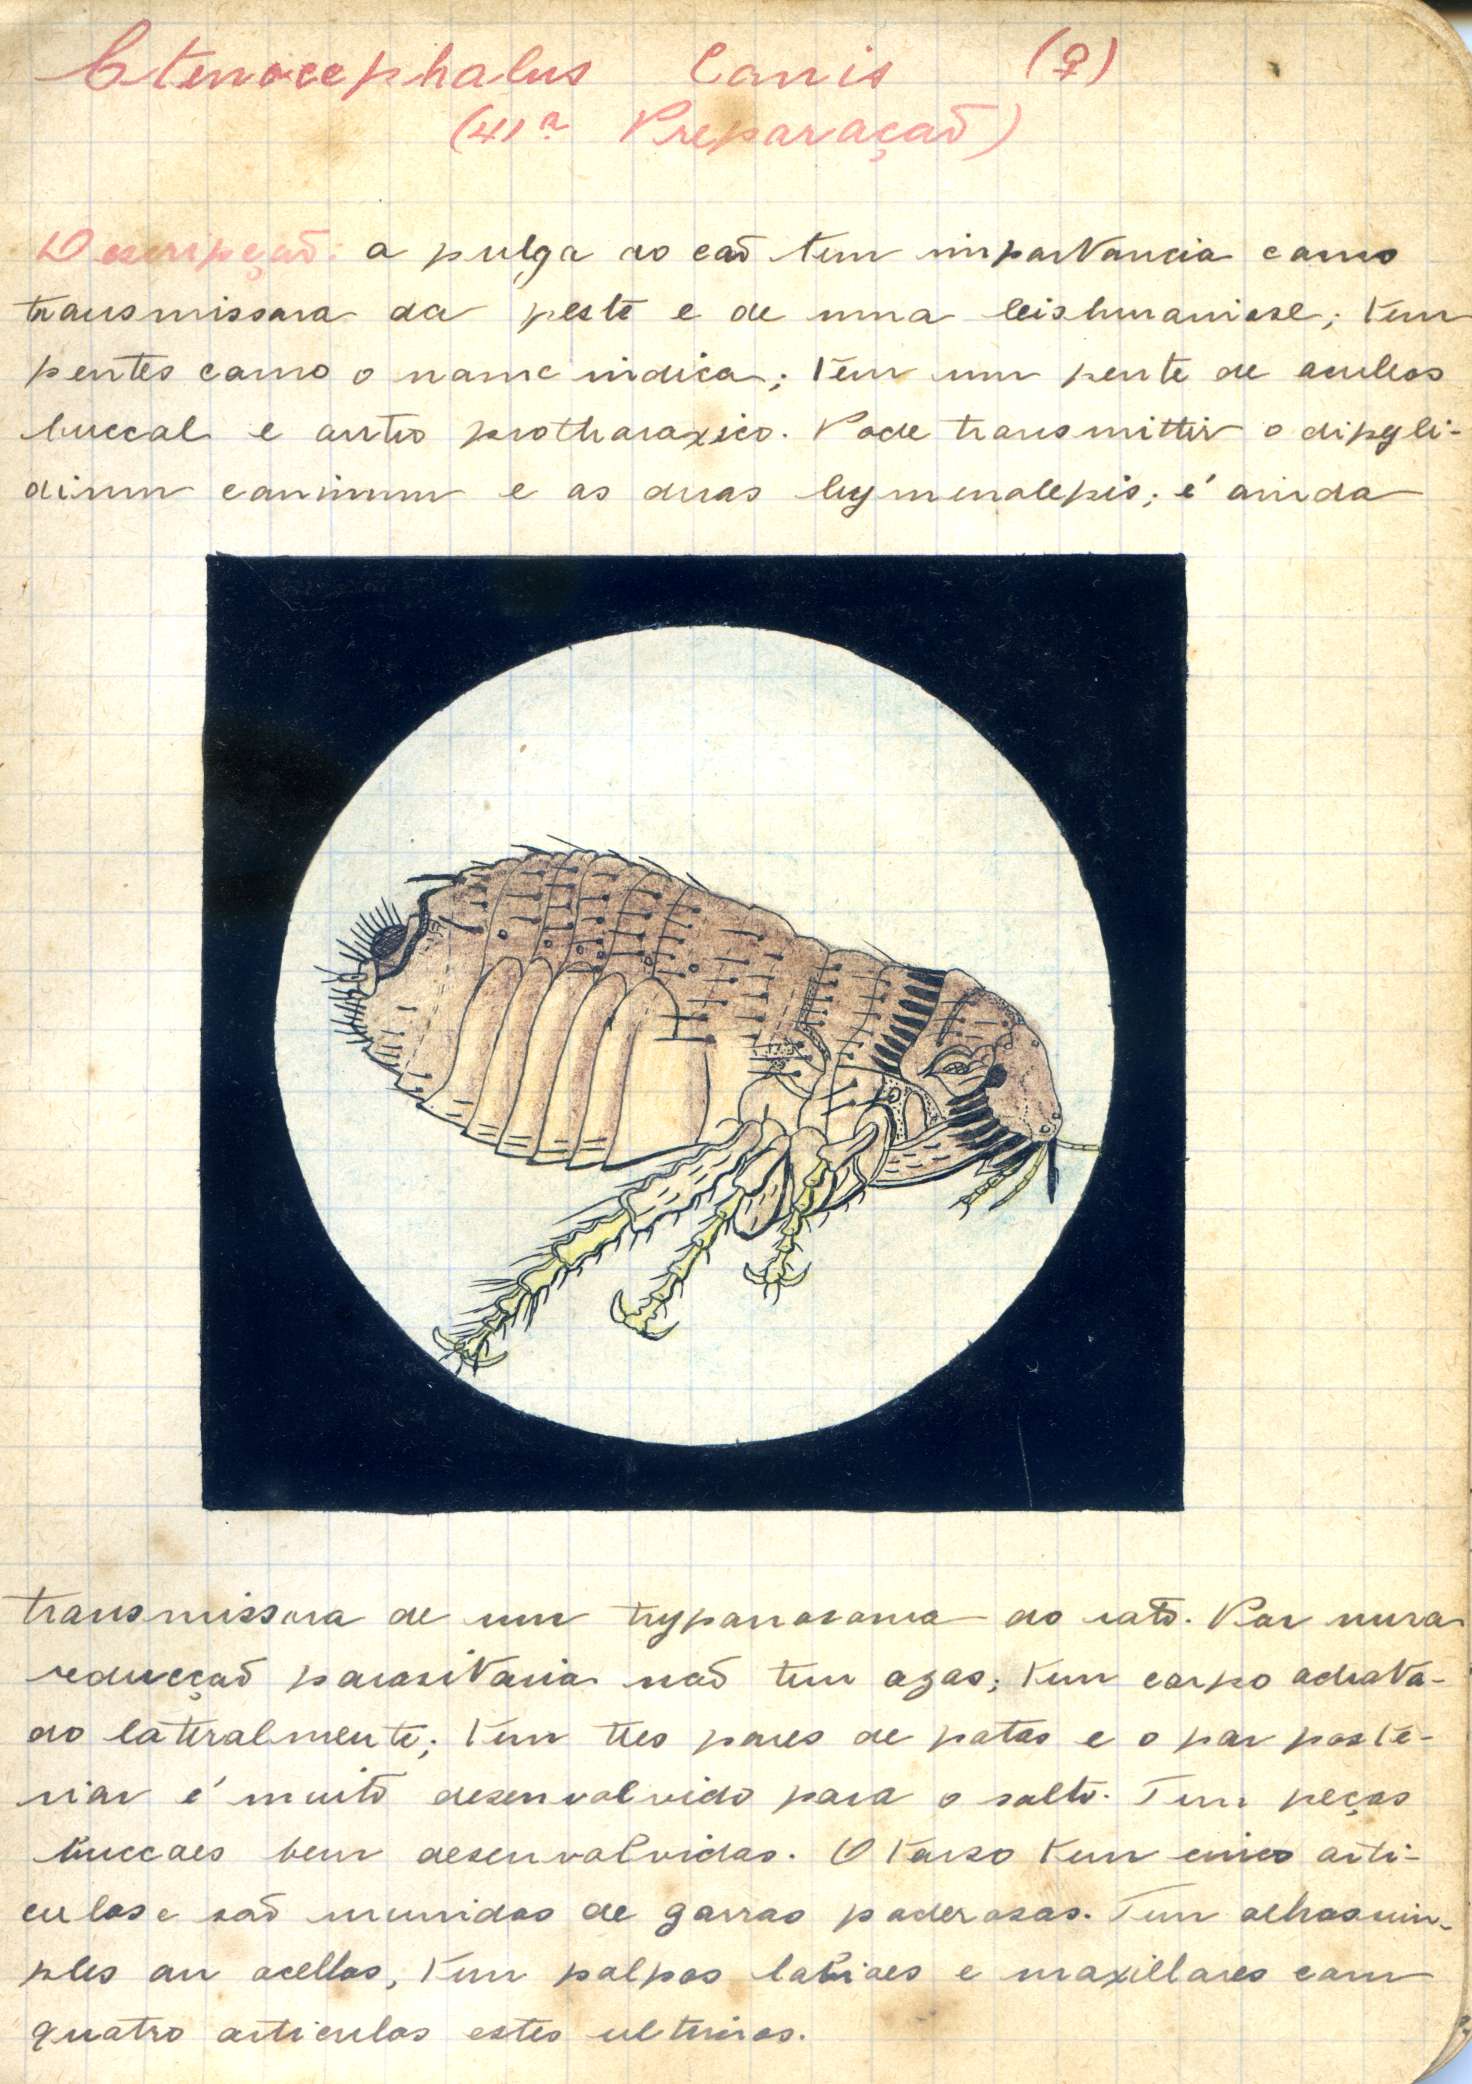 Ctenocephalus Canis (♀)
(41ª Preparação)
Descripção: a pulga do cão tem importancia como
transmissora da peste e de uma leishmaniose; tem
pentes como o nome indica; tem um pente de aculeos
buccal e outro prothoraxico. Pode transmittir o dipyli-
dium caninum e as duas hymenolepis; é ainda
transmissora de um trypanosoma do rato. Por uma
reducção parasitaria não tem azas; tem corpo achata-
do lateralmente; tem tres pares de patas e o par poste-
rior é muito desenvolvido para o salto. Tem peças
buccaes bem desenvolvidas. O tarso tem cinco arti-
culos e são munidos de garras poderosas. Tem olhos sim-
ples ou ocellos, tem palpos labiaes e maxillares com
quatro articulos estes ultimos.